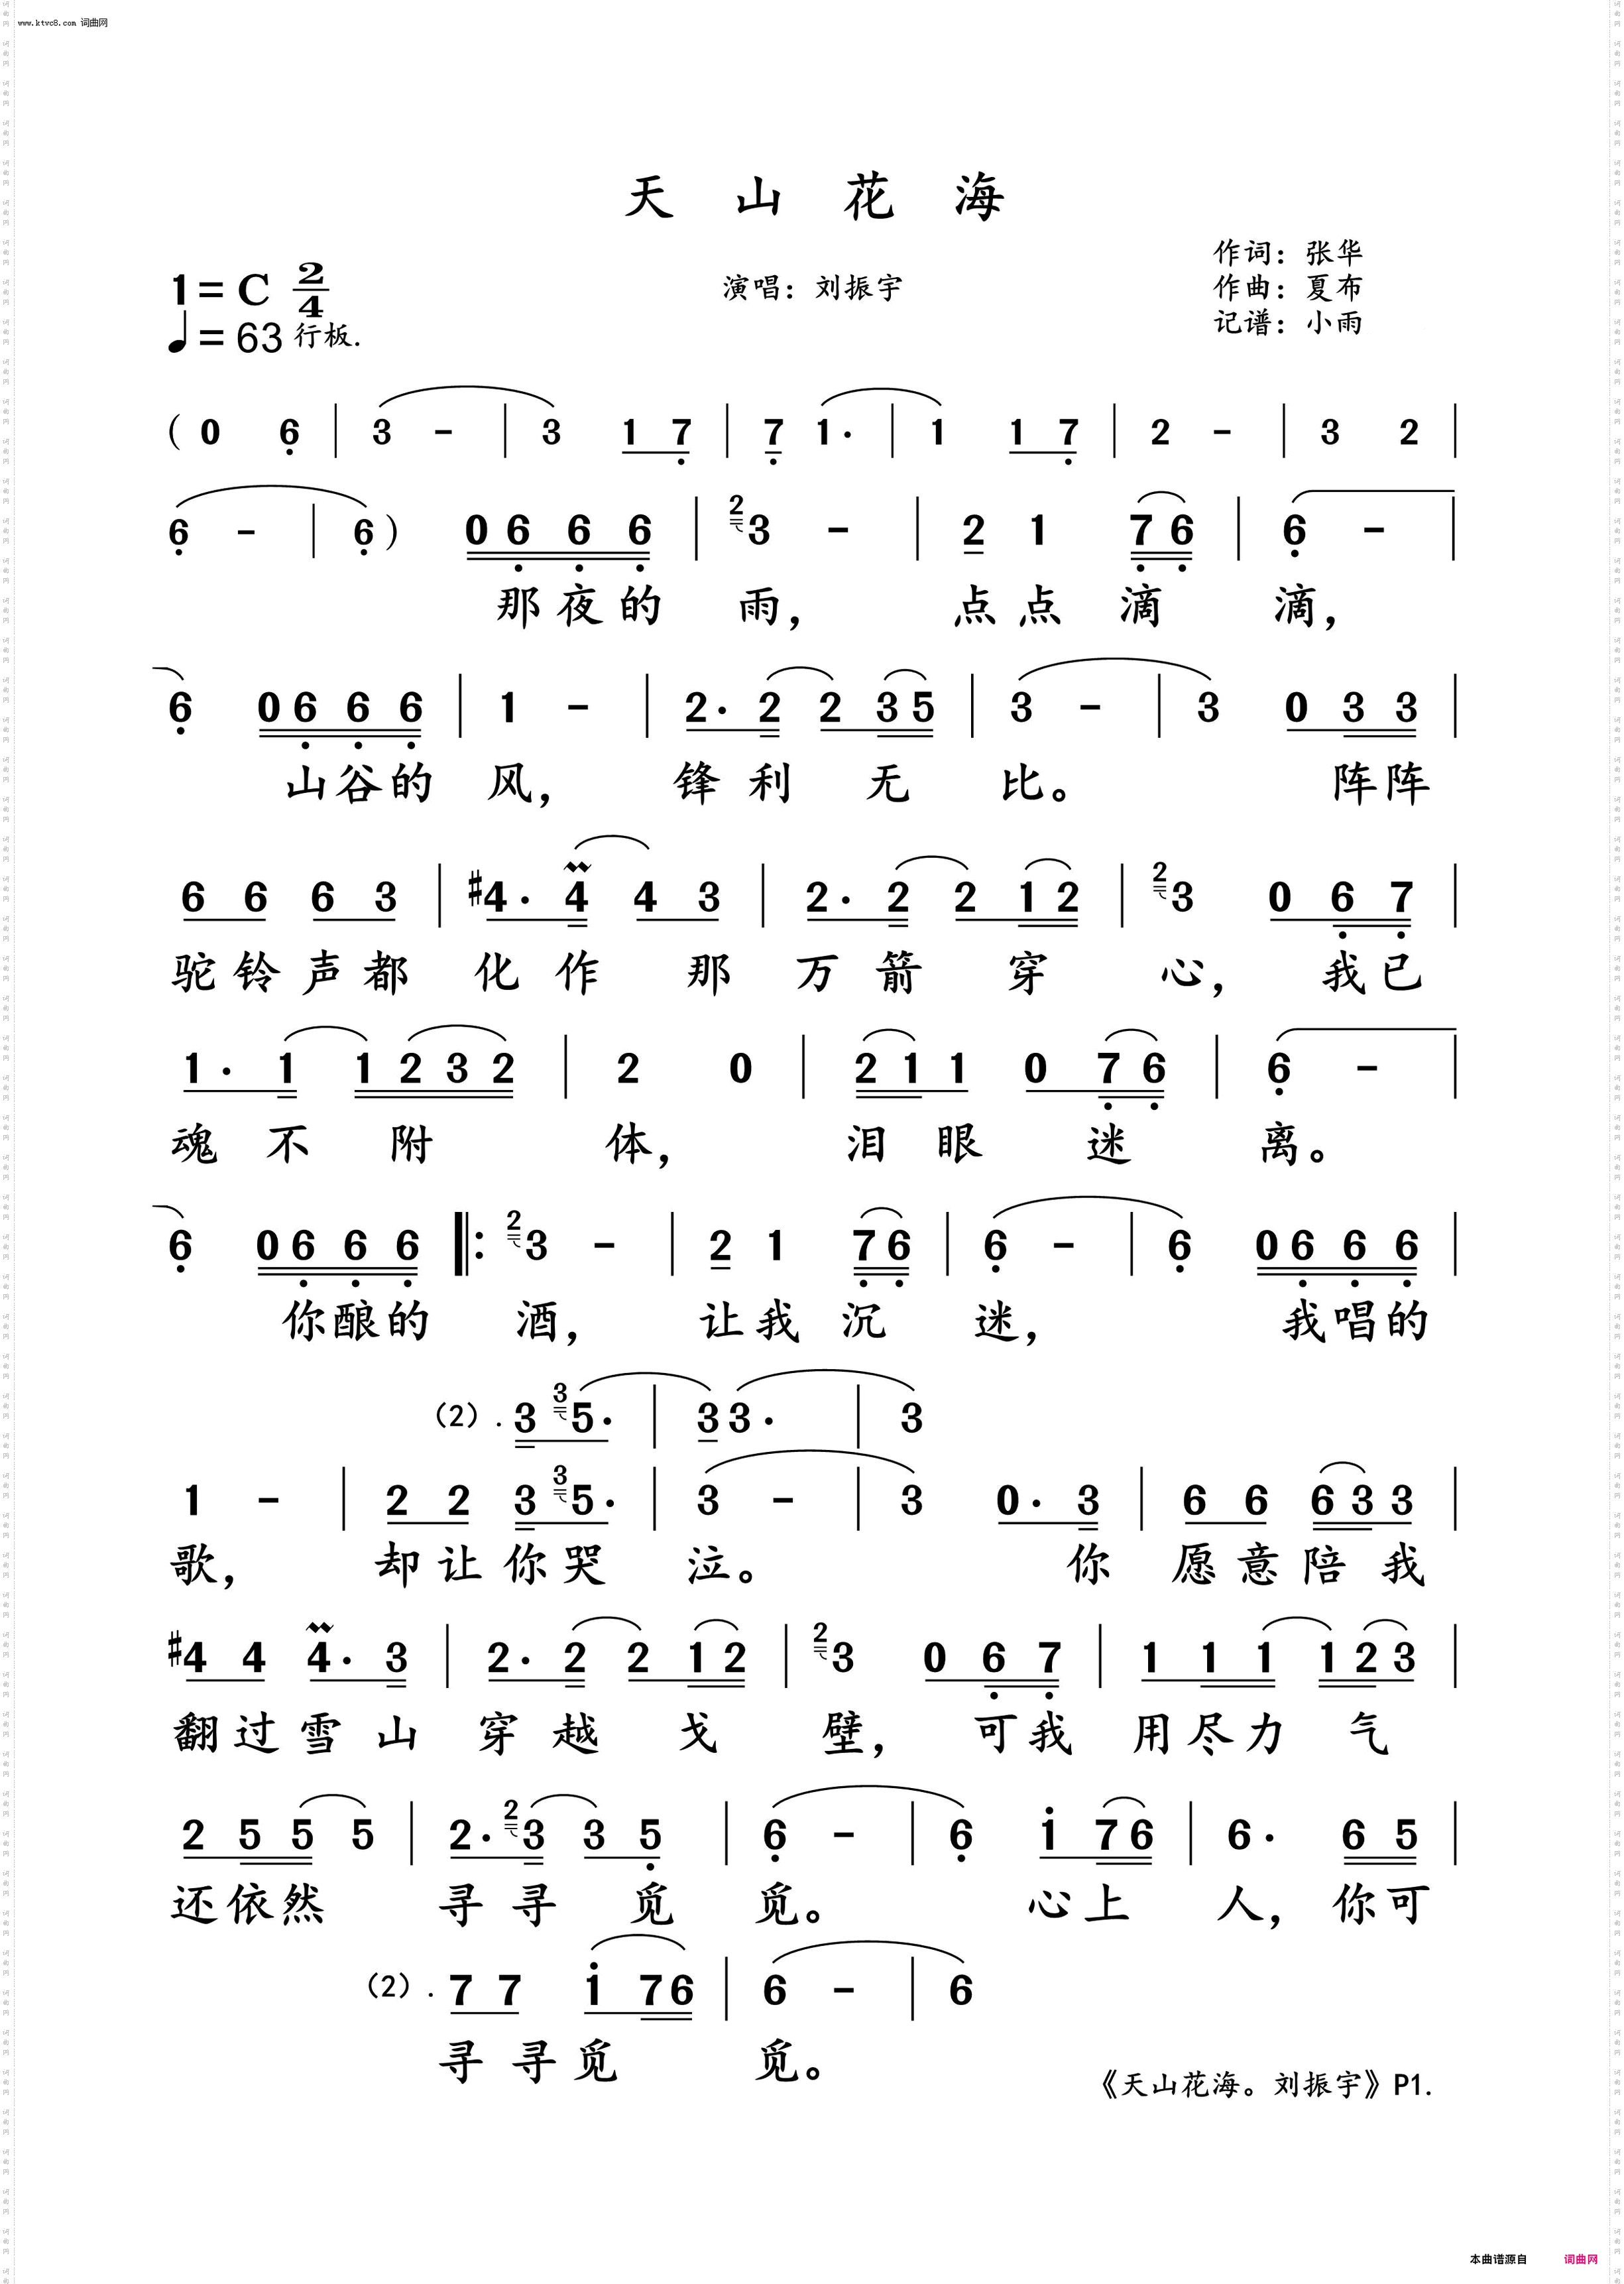 www.ktvc8.com 词曲网
天 山 花 海
作词：张华
1=C 2/4 演唱：刘振宇 作曲：夏布
♩=63 行板. 记谱：小雨
( 0 6̣ | 3 - | 3 1 7̣ | 7̣ 1· | 1 1 7̣ | 2 - | 3 2 |
6̣ - | 6̣ ) 0 6̣ 6̣ 6̣ | ²3 - | 2 1 7̣ 6̣ | 6̣ - |
那夜的 雨， 点点 滴 滴，
6̣ 0 6̣ 6̣ 6̣ | 1 - | 2· 2 2 3 5 | 3 - | 3 0 3 3 |
山谷的 风， 锋利 无 比。 阵阵
6 6 6 3 | #4· 4 4 3 | 2· 2 2 1 2 | ²3 0 6̣ 7̣ |
驼铃声都 化作 那 万箭 穿 心， 我已
1· 1 1 2 3 2 | 2 0 | 2 1 1 0 7̣ 6̣ | 6̣ - |
魂不 附 体， 泪眼 迷 离。
6̣ 0 6̣ 6̣ 6̣ |: ²3 - | 2 1 7̣ 6̣ | 6̣ - | 6̣ 0 6̣ 6̣ 6̣ |
你酿的 酒， 让我 沉 迷， 我唱的
（2）. 3 ³5· | 3 3· | 3
1 - | 2 2 3 ³5· | 3 - | 3 0· 3 | 6 6 6 3 3 |
歌， 却让你哭 泣。 你 愿意陪我
#4 4 4· 3 | 2· 2 2 1 2 | ²3 0 6̣ 7̣ | 1 1 1 1 2 3 |
翻过雪山 穿越 戈 壁， 可我 用尽力 气
2 5 5 5 | 2· ²3 3 5̣ | 6̣ - | 6̣ i 7 6 | 6· 6 5 |
还依然 寻寻 觅 觅。 心上 人， 你可
（2）. 7 7 i 7 6 | 6 - | 6
寻寻觅 觅。
《天山花海。刘振宇》P1.
本曲谱源自 词曲网